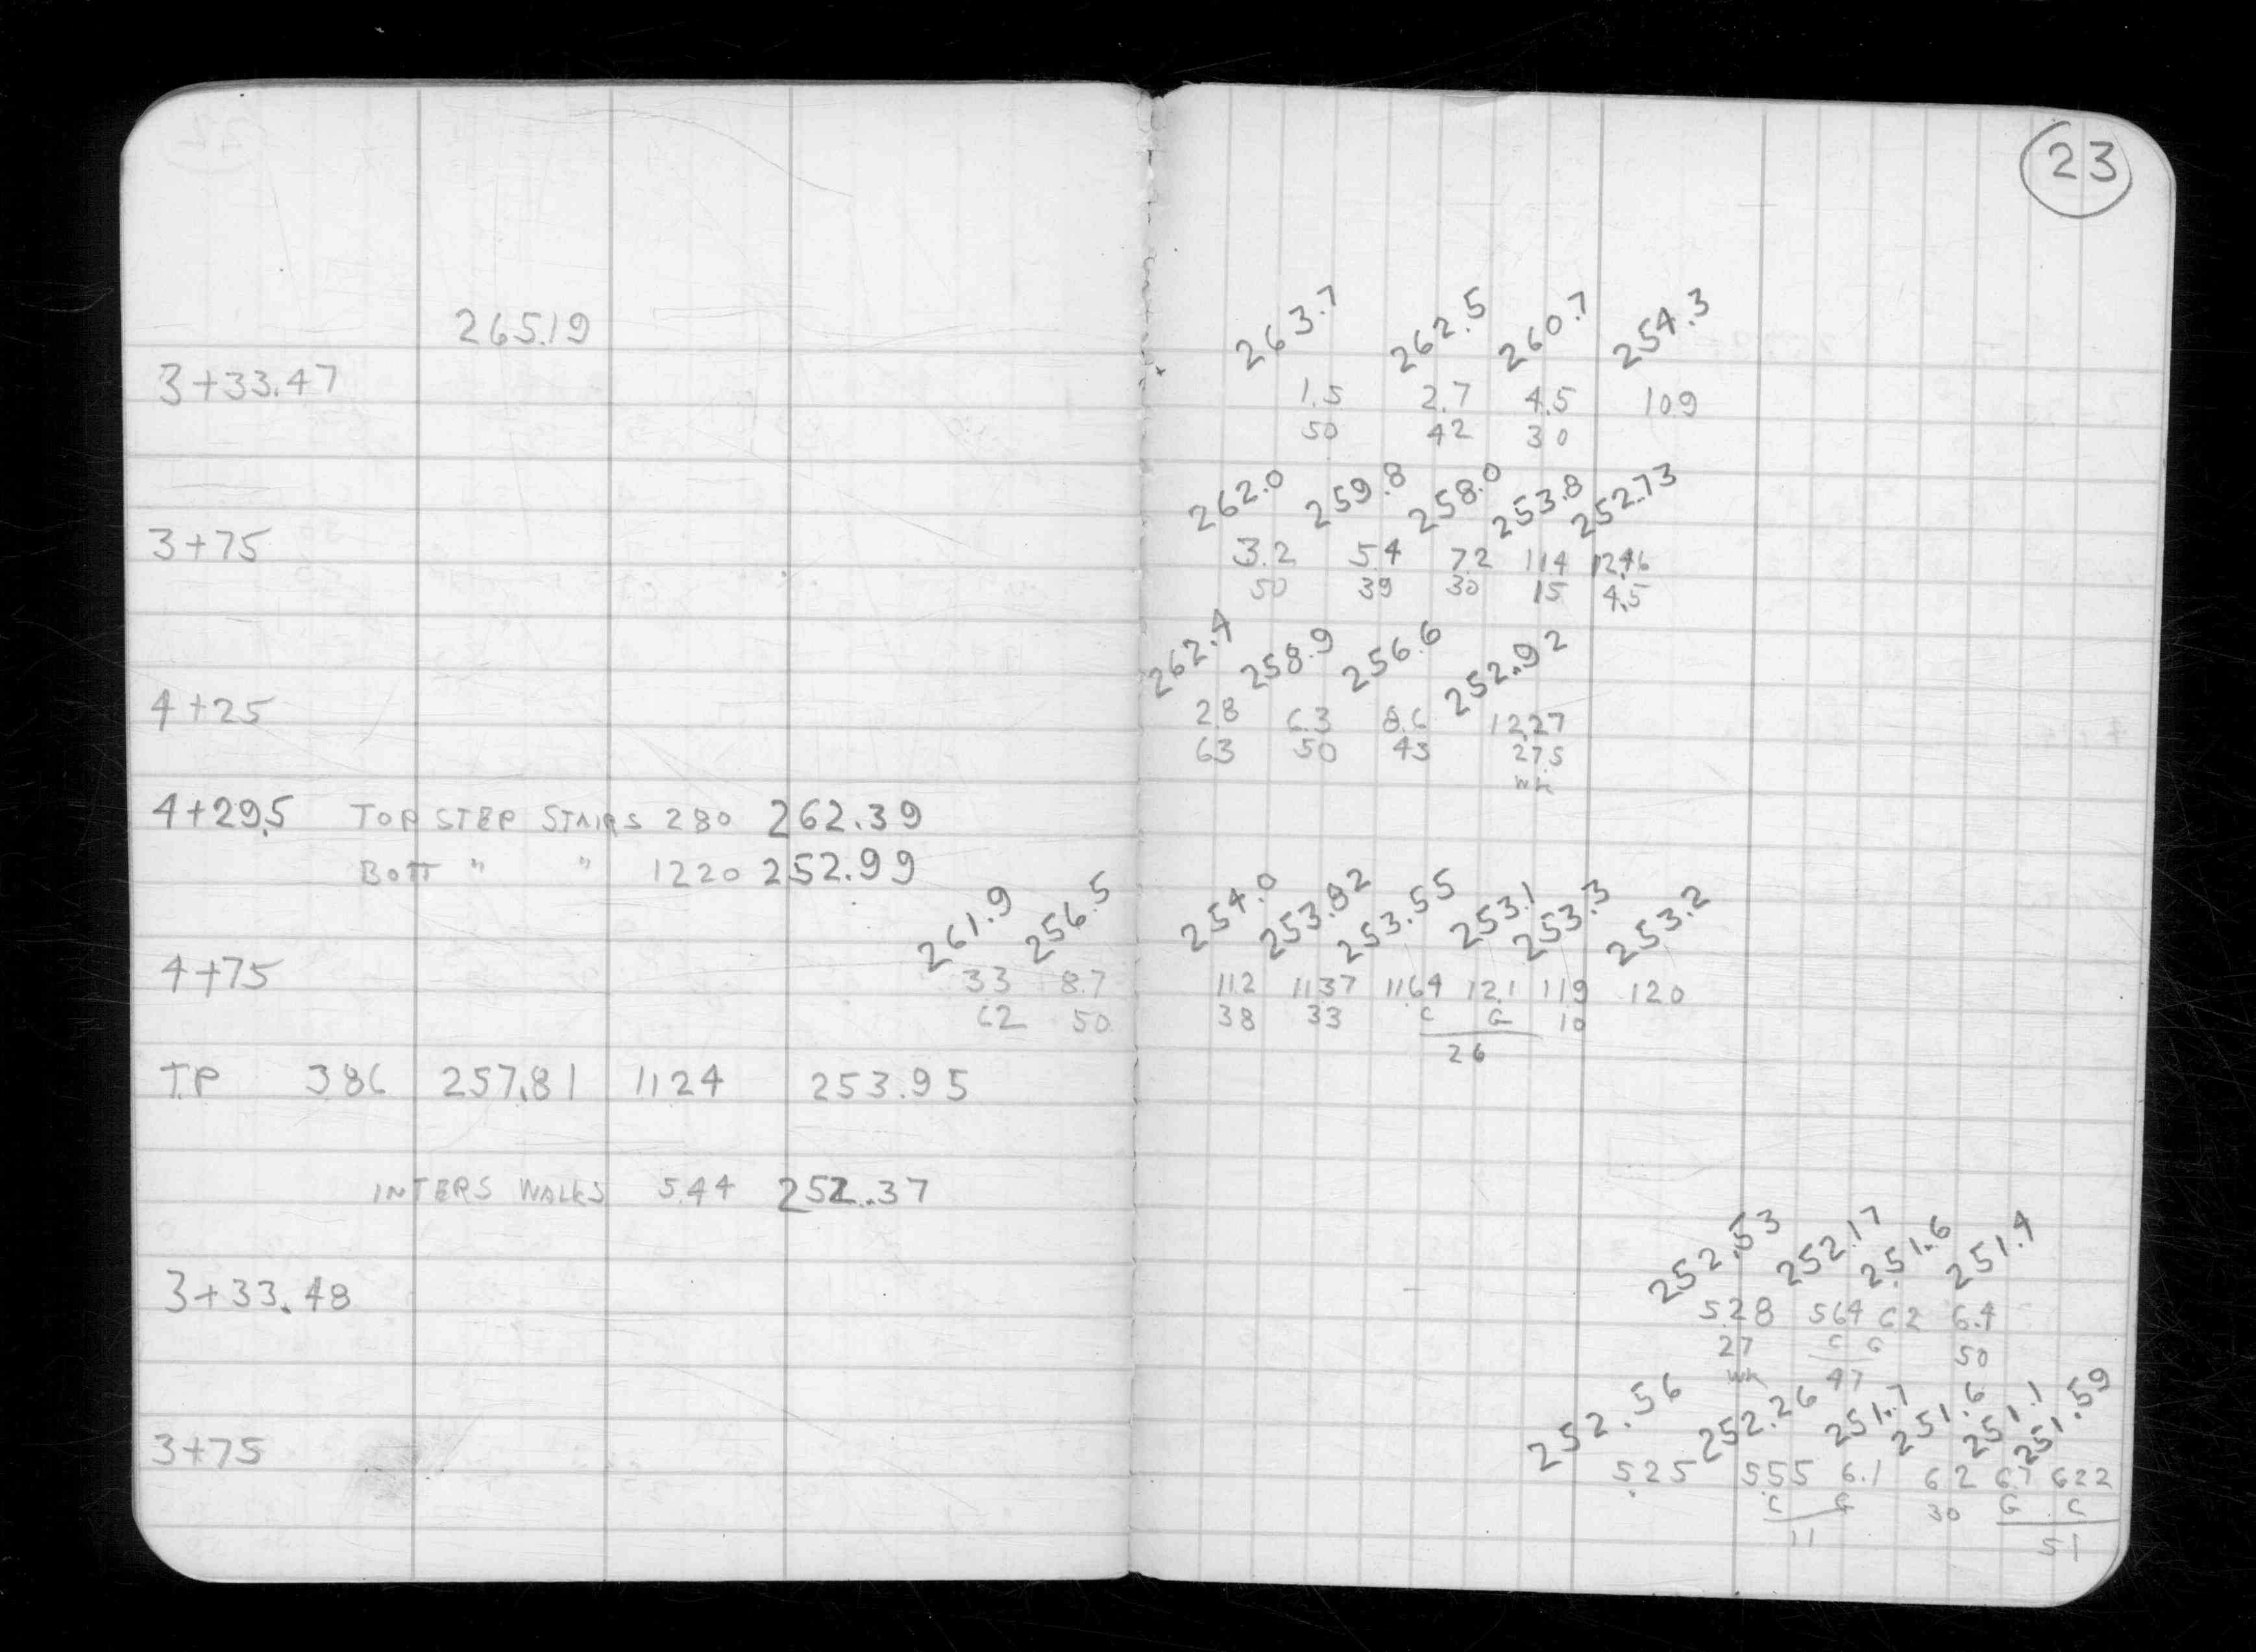 23
265.19
263.7 262.5 260.7 254.3
3+33.47 1.5 2.7 4.5 109
50 42 30
262.0 259.8 258.0 253.8 252.73
3+75 3.2 5.4 7.2 114 12.46
50 39 30 15 4.5
262.4 258.9 256.6 252.92
4+25 2.8 6.3 8.6 12.27
63 50 43 27.5
WK
4+29.5 TOP STEP STAIRS 280 262.39
BOTT " " 1220 252.99
261.9 256.5 254.0 253.82 253.55 253.1 253.3 253.2
4+75 33 8.7 11.2 11.37 11.64 12.1 11.9 120
62 50 38 33 C G 10
26
T.P 386 257.81 11.24 253.95
INTERS WALKS 5.44 252.37
252.53 252.17 251.6 251.4
3+33.48 5.28 564 62 6.4
27 C G 50
WK 47
252.56 252.26 251.7 251.6 251.1 251.59
3+75 5.25 5.55 6.1 62 6.7 622
C G 30 G C
11 51